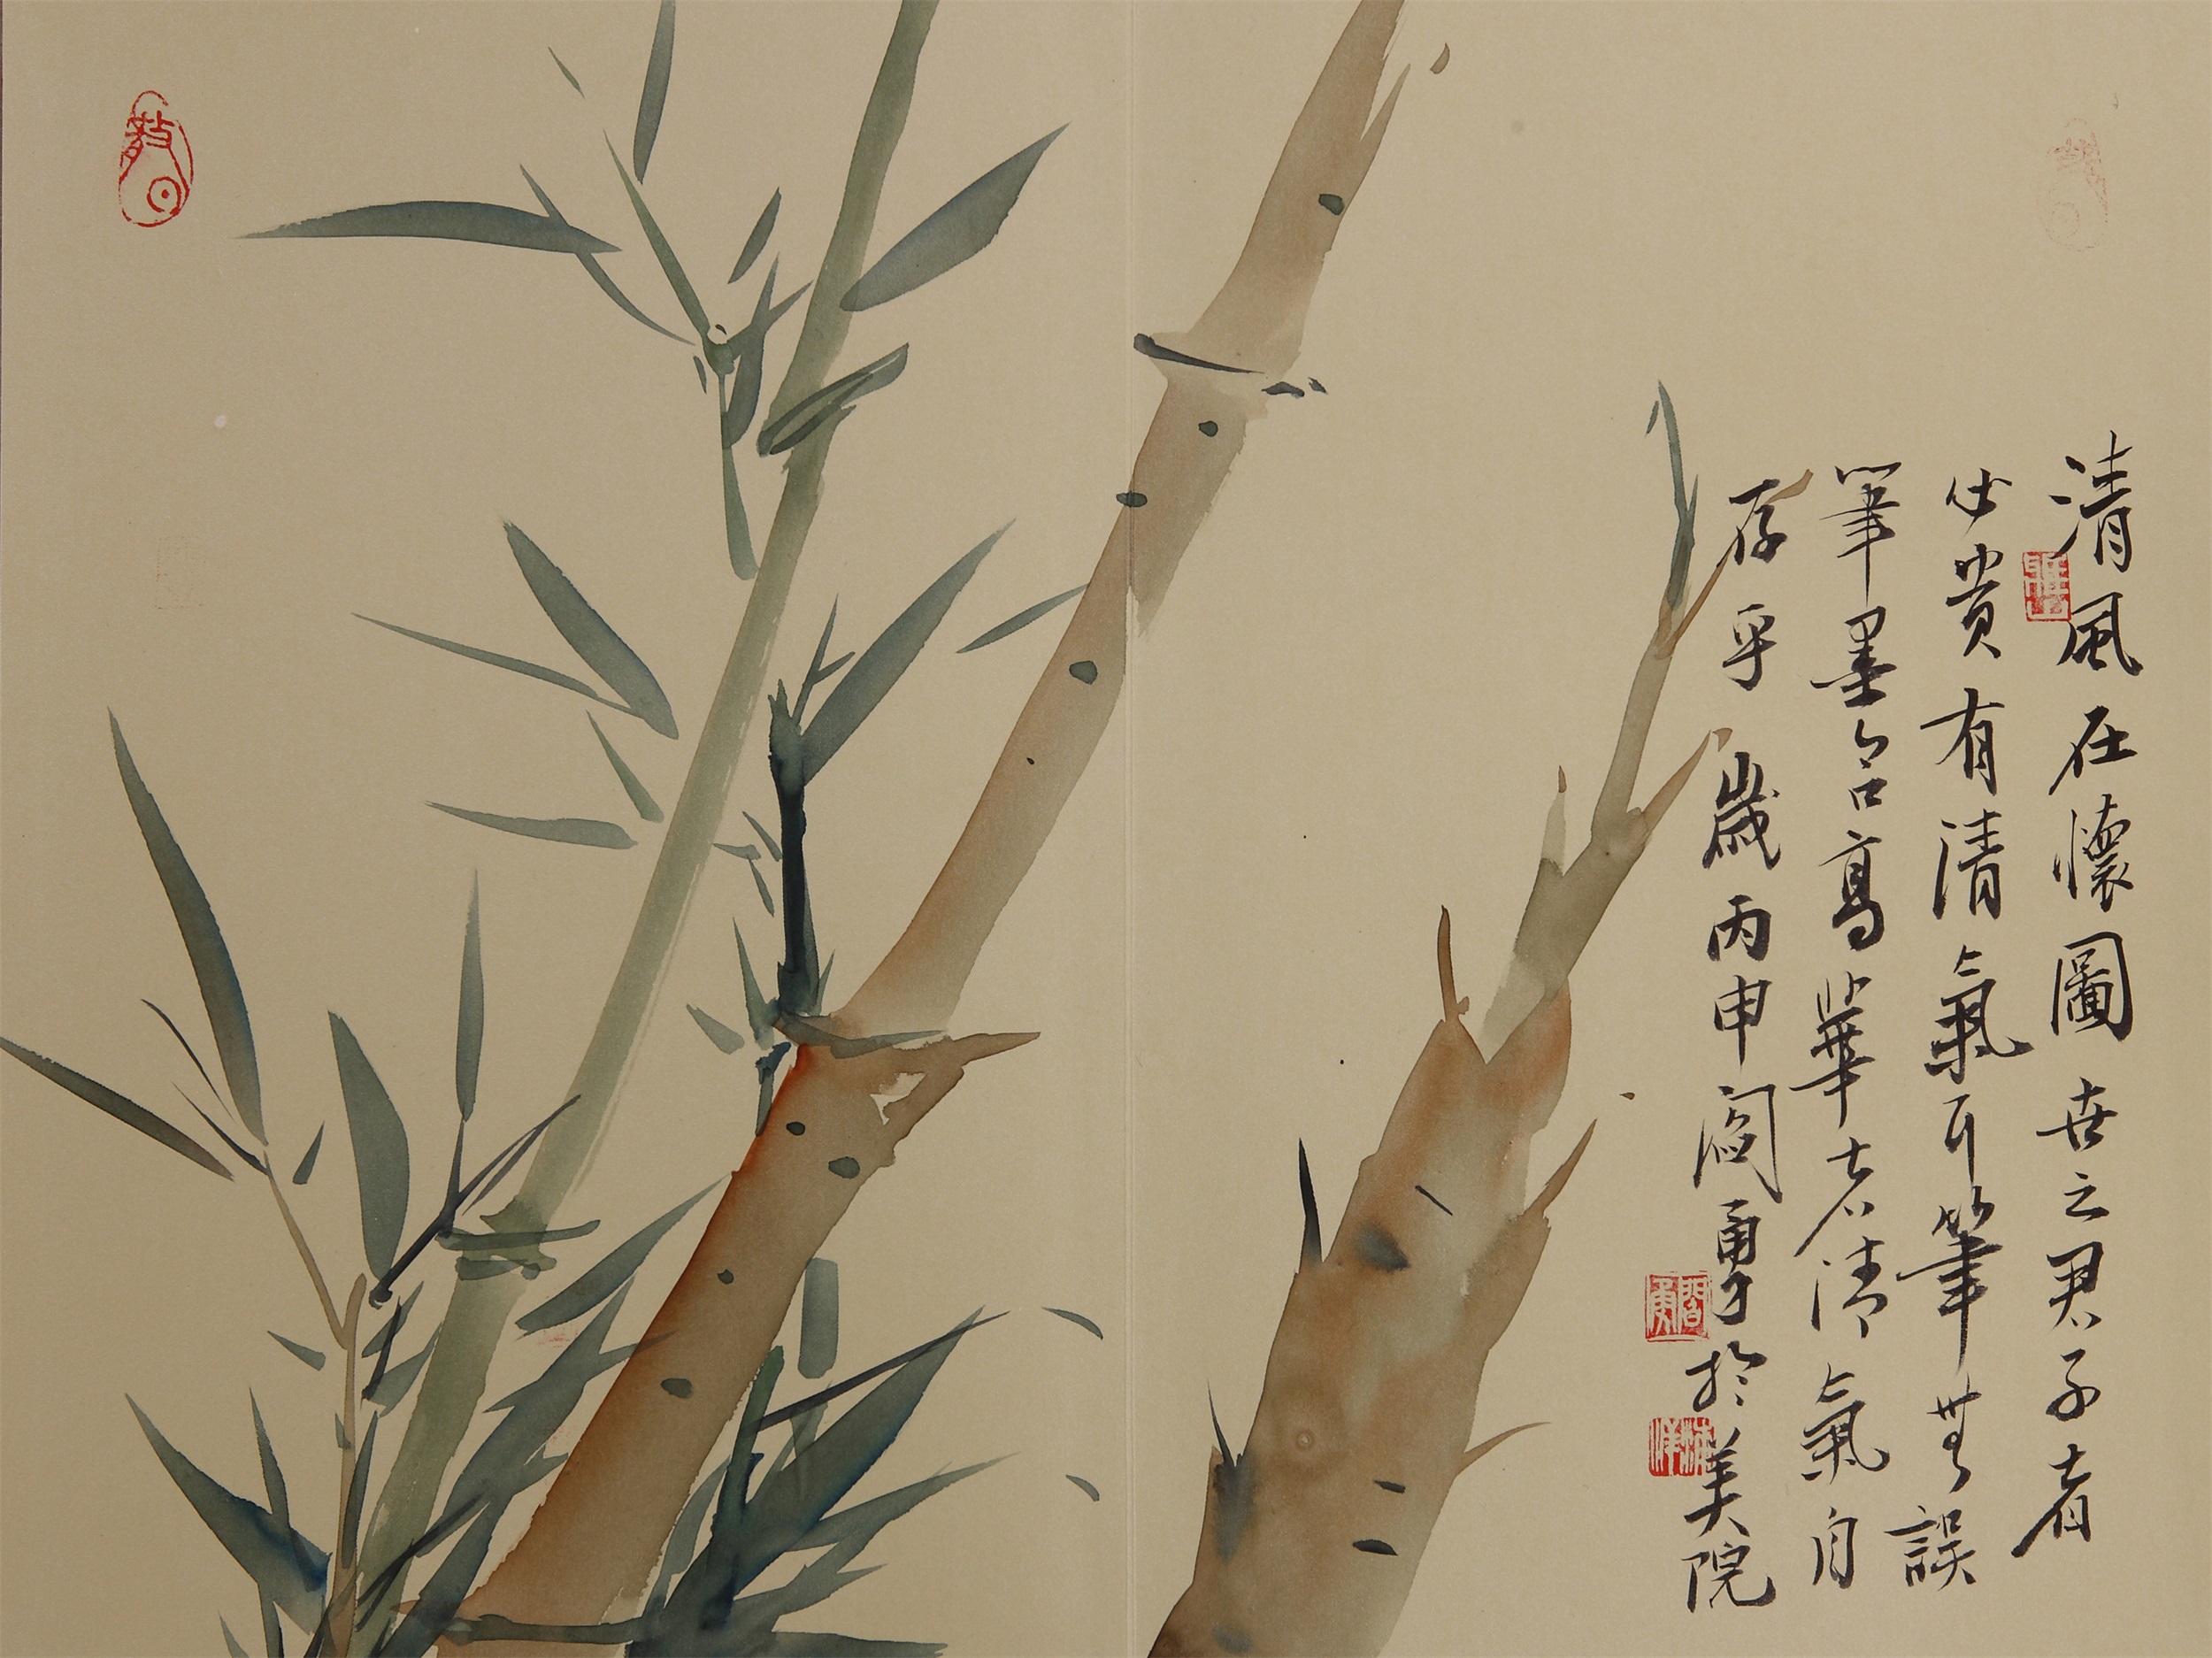 清風在懷圖世之君子者
必貴有清氣耳筆無誤
筆墨台高華者清氣自
存乎歲丙申閻勇於美院